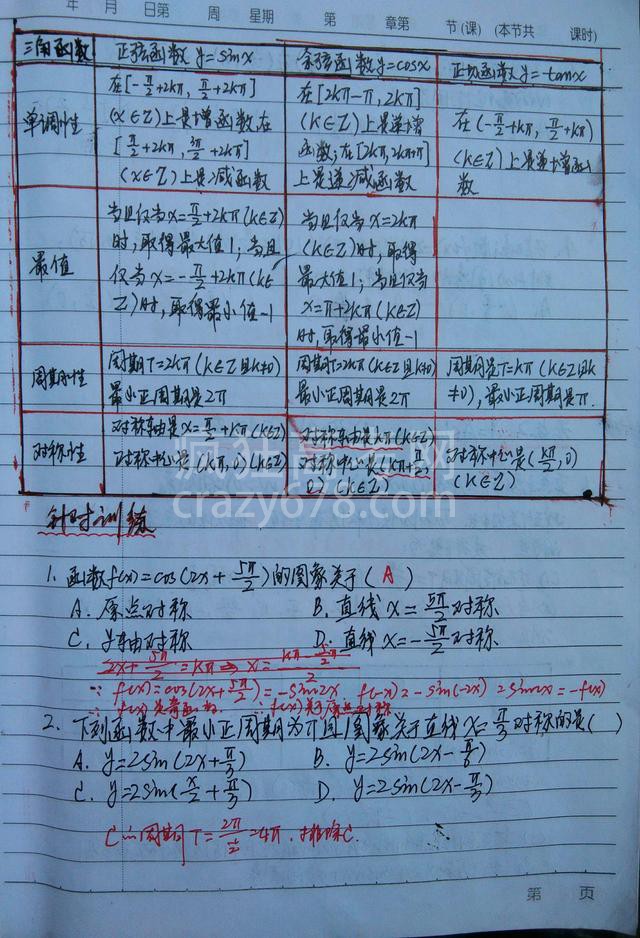 年 月 日第 周 星期 第 章第 节(课) (本节共 课时)
三角函数 正弦函数y=sinx 余弦函数y=cosx 正切函数y=tanx
单调性
在[-π/2+2kπ, π/2+2kπ]
(x∈Z)上是增函数,在
[π/2+2kπ, 3π/2+2kπ]
(x∈Z)上是减函数
在[2kπ-π, 2kπ]
(k∈Z)上是递增
函数;在[2kπ, 2kπ+π]
上是递减函数
在(-π/2+kπ, π/2+kπ)
(k∈Z)上是递增函
数
最值
当且仅当x=π/2+2kπ(k∈Z)
时,取得最大值1;当且
仅当x=-π/2+2kπ(k∈
Z)时,取得最小值-1
当且仅当x=2kπ
(k∈Z)时,取得
最大值1;当且仅当
x=π+2kπ(k∈Z)
时,取得最小值-1
周期性
周期T=2kπ(k∈Z且k≠0)
最小正周期是2π
周期T=2kπ(k∈Z且k≠0)
最小正周期是2π
周期是T=kπ(k∈Z且k
≠0),最小正周期是π.
对称性
对称轴是x=π/2+kπ(k∈Z)
对称中心是(kπ,0)(k∈Z)
对称轴由是kπ(k∈Z)
对称中心是(kπ+π/2,
0)(k∈Z)
对称中心是(kπ/2,0)
(k∈Z)
crazy678.com
针对训练
1. 函数f(x)=cos(2x+5π/2)的图象关于( A )
A. 原点对称 B. 直线x=5π/2对称
C. y轴对称 D. 直线x=-5π/2对称
2x+5π/2=kπ⇒x=(kπ-5π/2)/2
∵f(x)=cos(2x+5π/2)=-sin2x f(-x)=-sin(-2x)=sin2x=-f(x)
2. 下列函数中最小正周期为π且图象关于直线x=π/3对称的是( )
A. y=2sin(2x+π/3) B. y=2sin(2x-π/6)
C. y=2sin(x/2+π/3) D. y=2sin(2x-π/3)
C∵周期T=2π/½=4π.排除C.
第 页